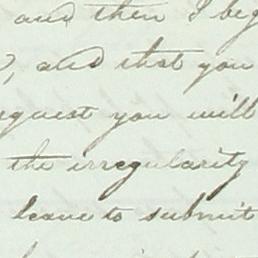 and then I beg
, and that you
quest you will
the irregularity
leave to submit